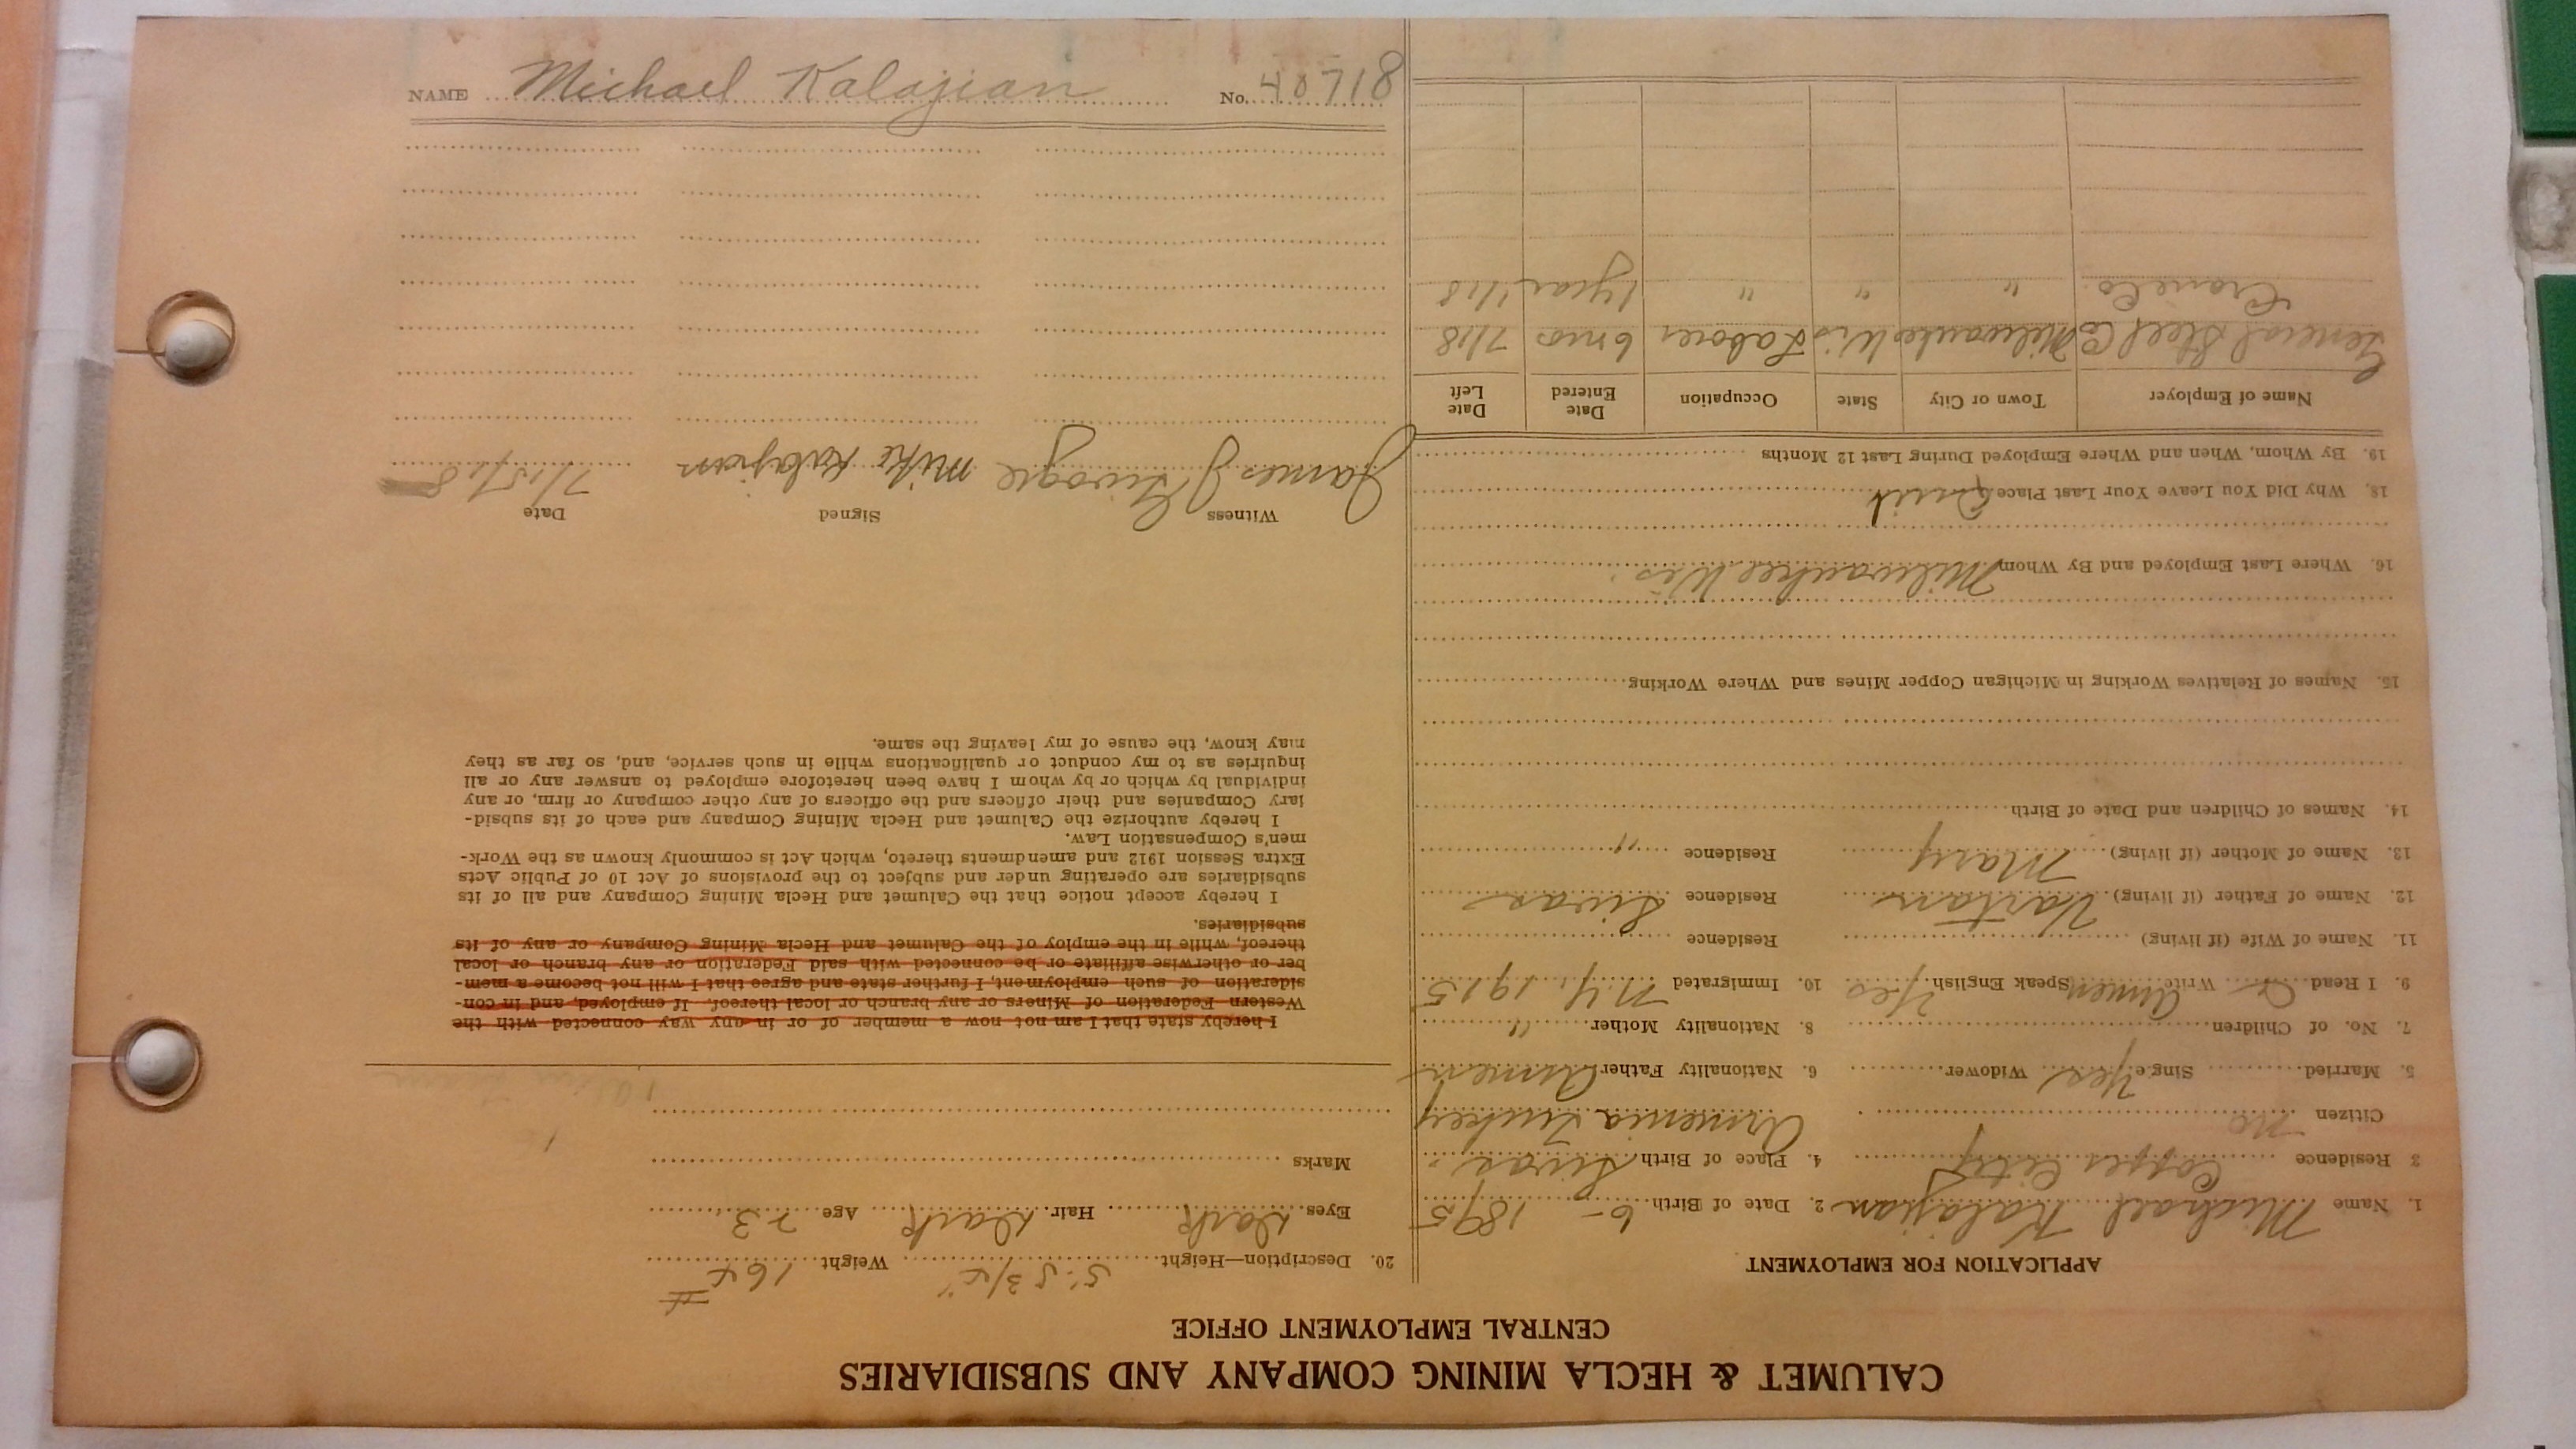 CALUMET & HECLA MINING COMPANY AND SUBSIDIARIES
CENTRAL EMPLOYMENT OFFICE
APPLICATION FOR EMPLOYMENT
1. Name Michael Kalajian 2. Date of Birth 6- 1895
3 Residence Copper City 4. Place of Birth Sivas
Citizen No Armenia Turkey
5. Married Single Yes Widower 6. Nationality Father Armen
7. No. of Children 8. Nationality Mother "
9. I Read Write Armen Speak English Yes 10. Immigrated N.Y. 1915
11. Name of Wife (if living) Residence
12. Name of Father (if living) Vartan Residence Sivas
13. Name of Mother (if living) Mary Residence "
14. Names of Children and Date of Birth
15. Names of Relatives Working in Michigan Copper Mines and Where Working
16. Where Last Employed and By Whom Milwaukee Wis.
18. Why Did You Leave Your Last Place Quit
19. By Whom, When and Where Employed During Last 12 Months
Name of Employer Town or City State Occupation Date Entered Date Left
General Steel Co Milwaukee Wis Laborer 6 mos 7/18
Crane Co. " " " 1 year 1/18
20. Description—Height 5' 5 3/4" Weight 164 #
Eyes Dark Hair Dark Age 23
Marks
I hereby state that I am not now a member of or in any way connected with the
Western Federation of Miners or any branch or local thereof. If employed, and in con-
sideration of such employment, I further state and agree that I will not become a mem-
ber or otherwise affiliate or be connected with said Federation or any branch or local
thereof, while in the employ of the Calumet and Hecla Mining Company or any of its
subsidiaries.
I hereby accept notice that the Calumet and Hecla Mining Company and all of its
subsidiaries are operating under and subject to the provisions of Act 10 of Public Acts
Extra Session 1912 and amendments thereto, which Act is commonly known as the Work-
men's Compensation Law.
I hereby authorize the Calumet and Hecla Mining Company and each of its subsid-
iary Companies and their officers and the officers of any other company or firm, or any
individual by which or by whom I have been heretofore employed to answer any or all
inquiries as to my conduct or qualifications while in such service, and, so far as they
may know, the cause of my leaving the same.
Witness Signed Date
James J Mike Kalajian 7/15/18
NAME Michael Kalajian No. 40718